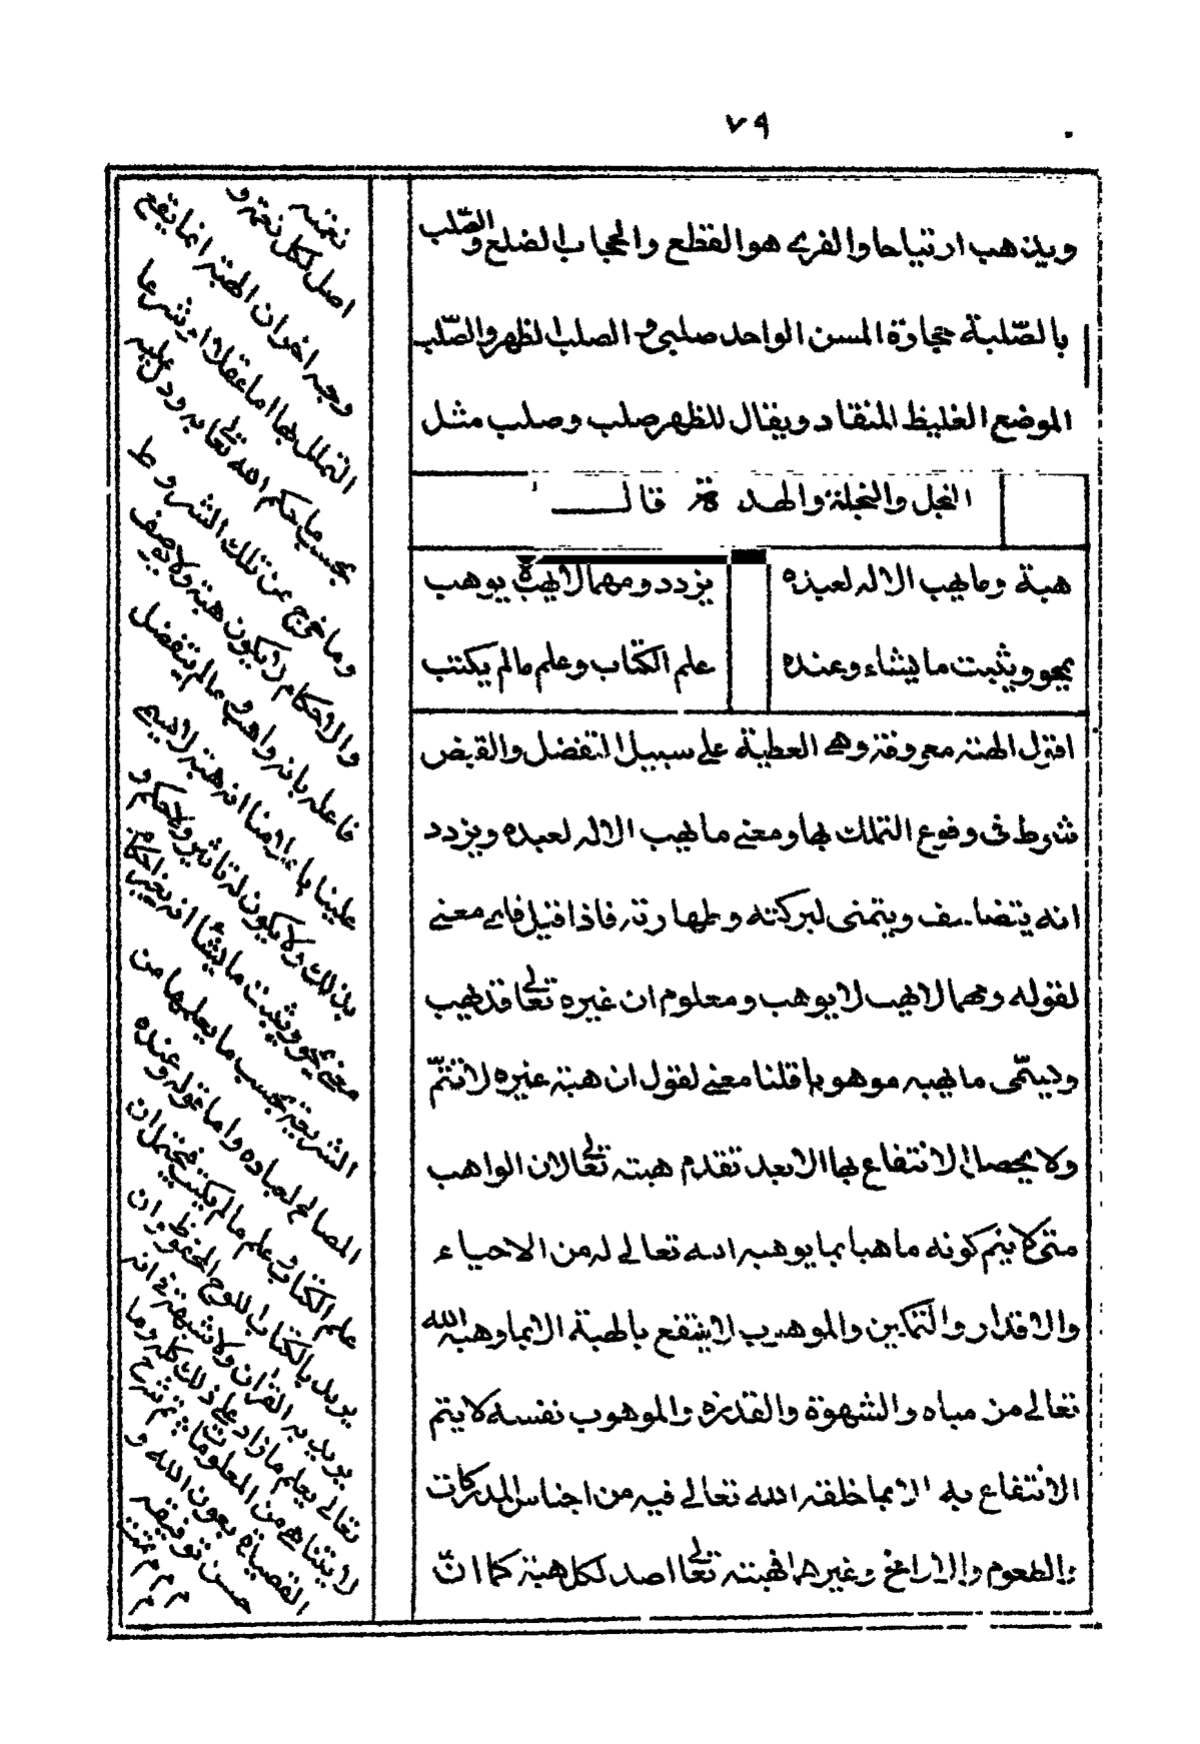 ٧٩
ويذهب ارتياحا والفرى هو القطع والحجاب الضلع والصّلب
بالصّلبة حجارة المسن الواحد صلبى و الصلب الظهر والصّلب
الموضع الغليظ المنقاد ويقال للظهر صلب وصلب مثل
النحل والنحلة والهدية قال
هبة وما يهب الاله لعبده
يزدد ومهما لا يهبه يوهب
يمحو ويثبت ما يشاء وعنده
علم الكتاب وعلم ما لم يكتب
اقول الهبته معروفة وهى العطية على سبيل التفضل والقبض
شرط فى وقوع التملك بها ومعنى ما يهب الاله لعبده ويزدد
انه يتضاعف ويتمنى لبركته وطهارته فاذا قيل فاى معنى
لقوله ومهما لا يهب لا يوهب ومعلوم ان غيره تعالى قد يهب
ويسمّى ما يهبه موهوبا قلنا معنى لقول ان هبته غيره لا تتمّ
ولا يحصل الانتفاع بها الا بعد تقدم هبته تعالى لان الواهب
متى لا يتم كونه ماهبا بما يوهبه الله تعالى له من الاحياء
والاقدار والتمكين والموهوب لا ينتفع بالهبة الا بما وهبه الله
تعالى من مباه والشهوة والقدرة والموهوب نفسه لا يتم
الانتفاع به الا بما خلقه الله تعالى فيه من اجناس المدركات
والطعوم والارايح وغيرهما فهبته تعالى اصل لكل هبة كما انّ
نعمته
اصل لكل نعمة و
وجه اخر ان الهبته انما يقع
التملك بها اما عقلا او شرعا
بحسب ما حكم الله تعالى به ودل عليه
وما خرج عن تلك الشروط
والاحكام لا يكون هبة ولا يوصف
فاعله بانه واهب ما لم يتفضل
علينا
بذلك ولا يكون له تاثير ولا حكم و
معنى يمحو ويثبت ما يشاء انه
الشريعة بحسب ما يعلمها من
المصالح لعباده واما قوله وعنده
علم الكتاب وعلم ما لم يكتب فيحتمل ان
يريد بالكتاب اللوح المحفوظ وان
يريد به القران ولا شبهة فى انه
تعالى يعلم ما زاد على ذلك كله وما
لا يتناهى من المعلومات ثم شرح
القصيدة بعون الله و
حسن توفيقه
تمت
م م م